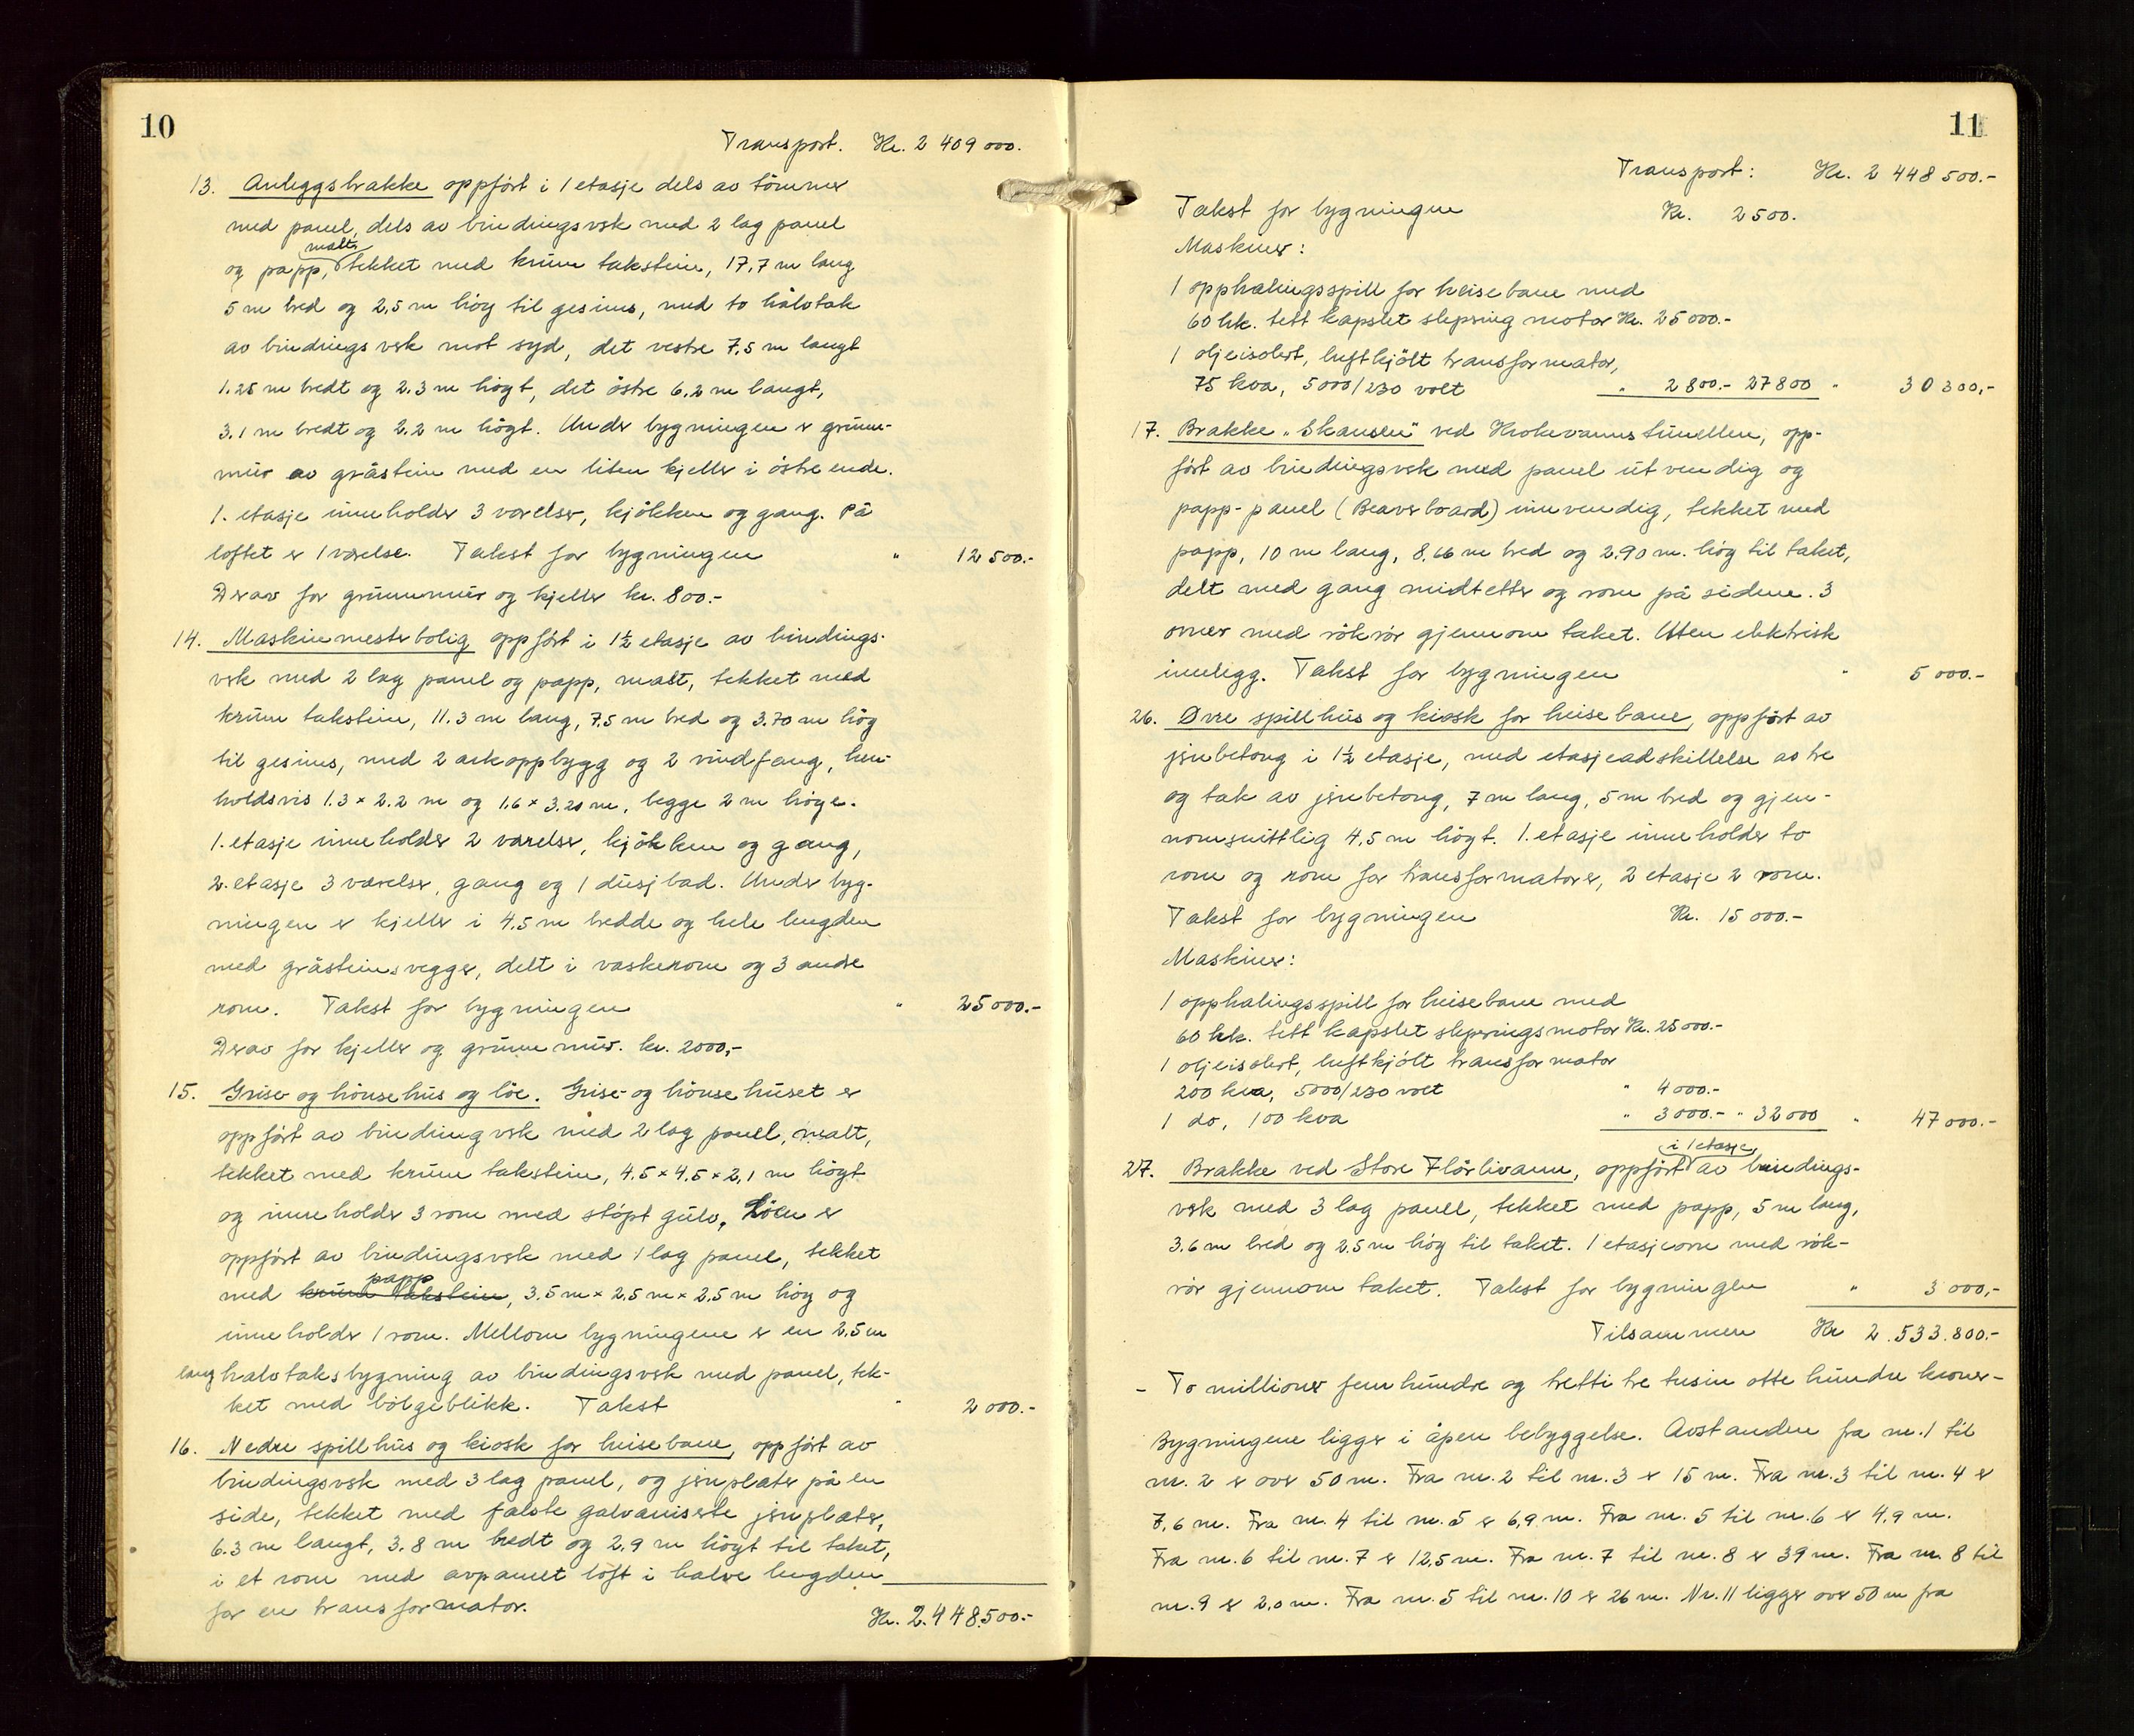 10
Transport. Kr. 2 409 000.
13. Anleggsbrakke oppført i 1 etasje dels av tömmer
med panel, dels av bindingsverk med 2 lag panel
malt,
og papp, tekket med krum takstein, 17,7 m lang
5 m bred og 2,5 m höy til gesims, med to halvtak
av bindingsverk mot syd, det vestre 7,5 m langt
1.25 m bredt og 2.3 m höyt, det östre 6.2 m langt,
3.1 m bredt og 2.2 m höyt. Under bygningen er grunn-
mur av gråstein med en liten kjeller i östre ende.
1. etasje inneholder 3 værelser, kjökken og gang. På
loftet er 1 værelse. Takst for bygningen " 12 500.-
Derav for grunnmur og kjeller kr. 800.-
14. Maskinmesterbolig oppfört i 1½ etasje av bindings-
verk med 2 lag panel og papp, malt, tekket med
krum takstein, 11.3 m lang, 7.5 m bred og 3.70 m höy
til gesims, med 2 arkoppbygg og 2 vindfang, hen-
holdsvis 1.3 × 2.2 m og 1.6 × 3.20 m, begge 2 m höye.
1. etasje inneholder 2 værelser, kjökken og gang,
2. etasje 3 værelser, gang og 1 dusjbad. Under byg-
ningen er kjeller i 4,5 m bredde og hele lengden
med gråsteinsvegger, delt i vaskerom og 3 andre
rom. Takst for bygningen " 25 000.-
Derav for kjeller og grunnmur. kr. 2000,-
15. Grise- og hönsehus og löe. Grise- og hönsehuset er
oppfört av bindingverk med 2 lag panel, malt,
tekket med krum takstein, 4.5 × 4,5 × 2,1 m höyt
og inneholder 3 rom med stöpt gulv. Löen er
oppfört av bindingsverk med 1 lag panel, tekket
papp
med krum takstein, 3.5 m × 2.5 m × 2.5 m höy og
inneholder 1 rom. Mellom bygningene er en 2.5 m
lang halvtaksbygning av bindingsverk med panel, tek-
ket med bölgeblikk. Takst " 2 000.-
16. Nedre spillhus og kiosk for heisebane, oppfört av
bindingsverk med 3 lag panel, og jernplater på en
side, tekket med falste galvaniserte jernplater,
6.3 m langt, 3.8 m bredt og 2.9 m höyt til taket,
i et rom med avpanelt loft i halve lengden
for en transformator.
Kr. 2.448.500.-
11
Transport: Kr. 2 448 500.-
Takst for bygningen Kr. 2 500.
Maskiner:
1 opphalingsspill for heisebane med
60 hk. tett kapslet slepring motor Kr. 25 000.-
1 oljeisolert, luftkjölt transformator,
75 kva, 5000/230 volt " 2 800.- 27 800 " 30 300,-
17. Brakke "Skansen" ved Krokevannstunellen, opp-
fört av bindingsverk med panel utvendig og
papp-panel (Beaverboard) innvendig, tekket med
papp, 10 m lang, 8.66 m bred og 2.90 m. höy til taket,
delt med gang midtetter og rom på sidene. 3
ovner med rökrör gjennom taket. Uten elektrisk
innlegg. Takst for bygningen " 5 000.-
26. Övre spillhus og kiosk for heisebane, oppfört av
jernbetong i 1½ etasje, med etasjeadskillelse av tre
og tak av jernbetong, 7 m lang, 5 m bred og gjen-
nomsnittlig 4,5 m höyt. 1. etasje inneholder to
rom og rom for transformatorer, 2 etasje 2 rom.
Takst for bygningen Kr. 15 000.-
Maskiner:
1 opphalingsspill for heisebane med
60 hk. tett kapslet slepringsmotor Kr. 25 000.-
1 oljeisolert, luftkjölt transformator
200 kva, 5000/230 volt " 4 000.-
1 do, 100 kva " 3 000.- " 32 000 " 47 000.-
i 1 etasje
27. Brakke ved Store Flörlivann, oppfört av bindings-
verk med 3 lag panel, tekket med papp, 5 m lang,
3.6 m bred og 2.5 m höy til taket. 1 etasjeovn med rök-
rör gjennom taket. Takst for bygningen " 3 000,-
Tilsammen Kr 2.533.800.-
- To millioner fem hundre og tretti tre tusin otte hundre kroner-
Bygningene ligger i åpen bebyggelse. Avstanden fra nr. 1 til
nr. 2 er over 50 m. Fra nr. 2 til nr. 3 er 15 m. Fra nr. 3 til nr. 4 er
7,6 m. Fra nr. 4 til nr. 5 er 6,9 m. Fra nr. 5 til nr. 6 er 4,9 m.
Fra nr. 6 til nr. 7 er 12,5 m. Fra nr. 7 til nr. 8 er 39 m. Fra nr. 8 til
nr. 9 er 2,0 m. Fra nr. 5 til nr. 10 er 26 m. Nr. 11 ligger over 50 m fra